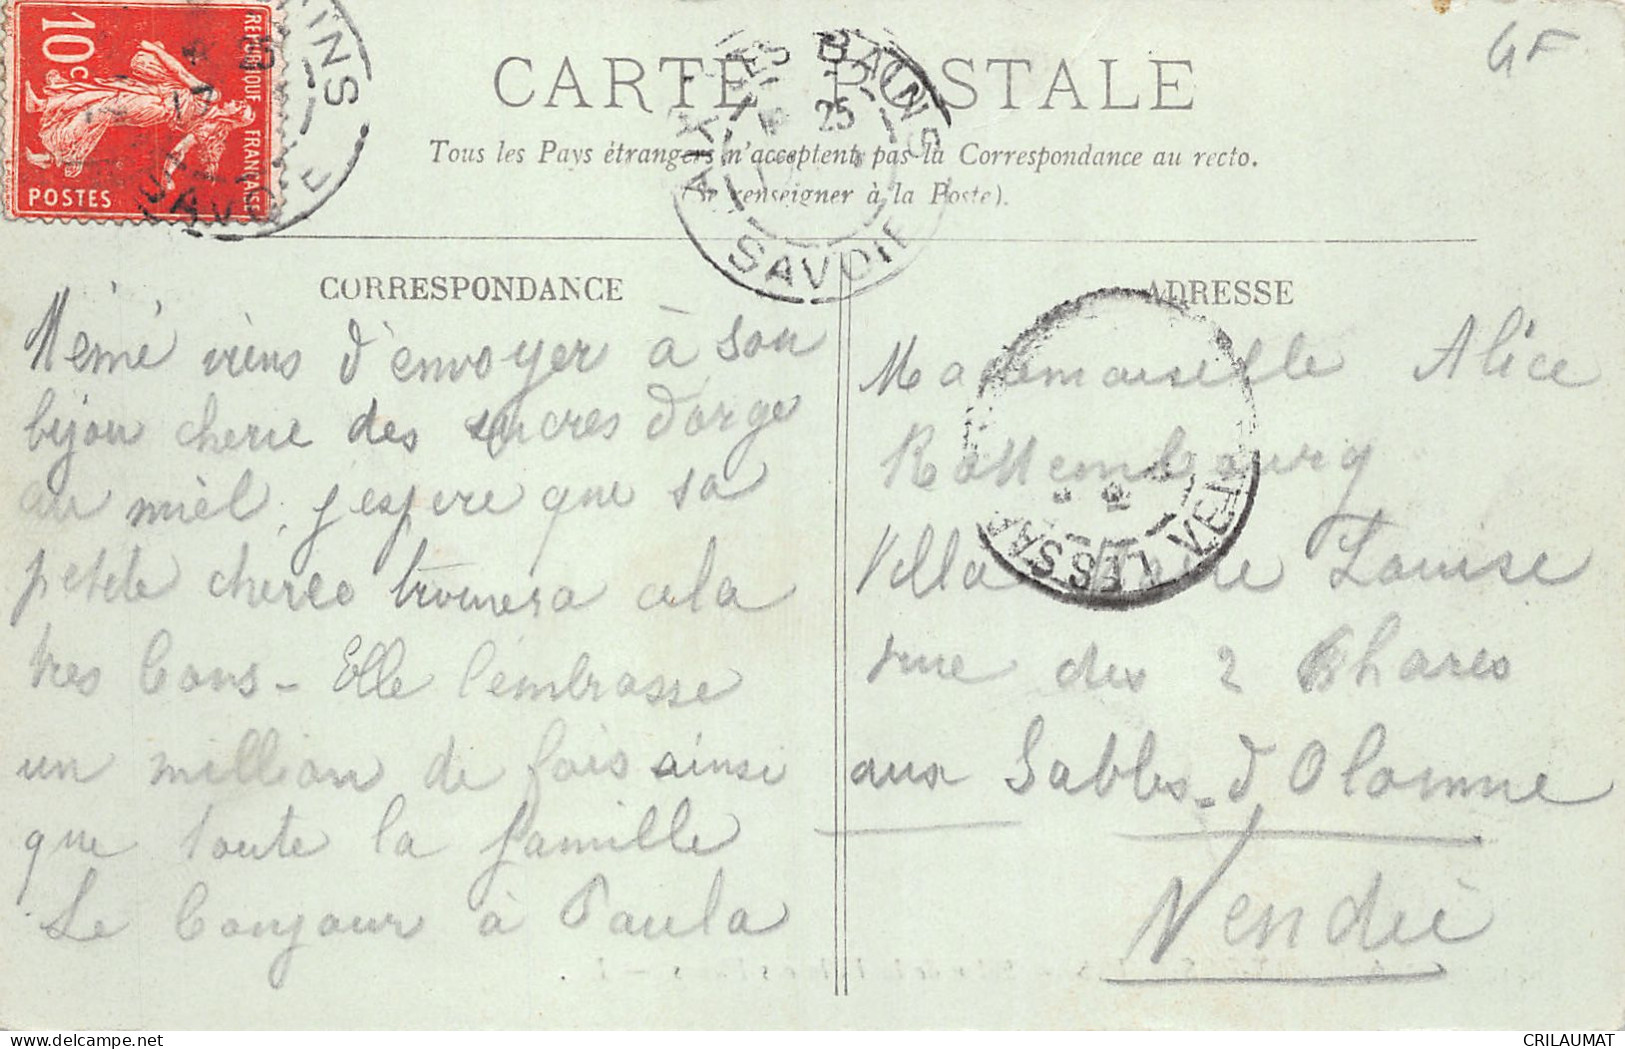 10c
REPUBLIQUE FRANÇAISE
POSTES
SAVOIE
GF
CARTE POSTALE
Tous les Pays étrangers n'acceptent pas la Correspondance au recto.
(Se renseigner à la Poste).
AIX LES BAINS
25
SAVOIE
CORRESPONDANCE
Mémé viens d'envoyer à son
bijou cherie des sucres d'orge
au miel, j espere que sa
petite cheree trouvera cela
tres bons - Elle l'embrasse
un million de fois ainsi
que toute la famille
Le bonjour à Paula
ADRESSE
Mademoiselle Alice
Rottembourg
Villa Marie Louise
rue des 2 Phares
aux Sables-d'Olonne
Vendée
LES SA
CRILAUMAT